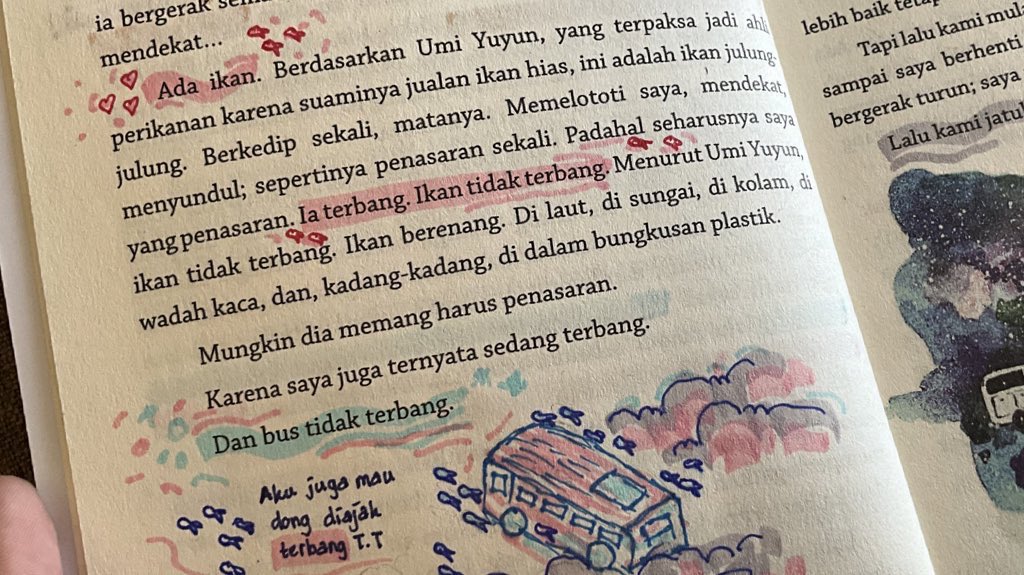 ia bergerak
mendekat...
Ada ikan. Berdasarkan Umi Yuyun, yang terpaksa jadi ahli
perikanan karena suaminya jualan ikan hias, ini adalah ikan julung-
julung. Berkedip sekali, matanya. Memelototi saya, mendekat,
menyundul; sepertinya penasaran sekali. Padahal seharusnya saya
yang penasaran. Ia terbang. Ikan tidak terbang. Menurut Umi Yuyun,
ikan tidak terbang. Ikan berenang. Di laut, di sungai, di kolam, di
wadah kaca, dan, kadang-kadang, di dalam bungkusan plastik.
Mungkin dia memang harus penasaran.
Karena saya juga ternyata sedang terbang.
Dan bus tidak terbang.
Aku juga mau
dong diajak
terbang T.T
lebih baik
Tapi lalu kami
sampai saya berhenti
bergerak turun; saya
Lalu kami